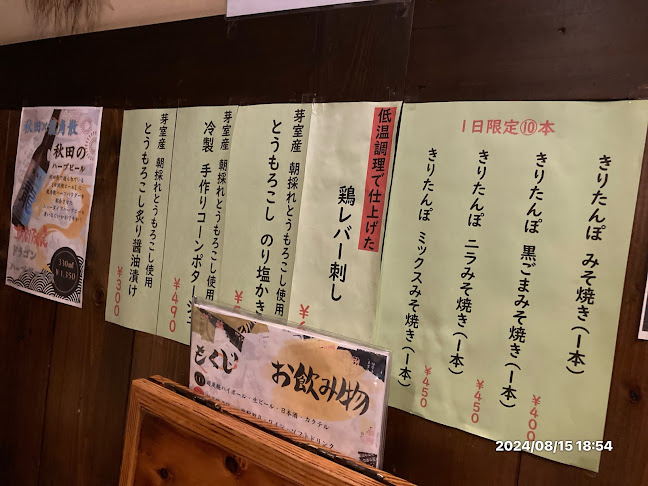 1日限定⑩本
きりたんぽ みそ焼き(1本)
きりたんぽ 黒ごまみそ焼き(1本)
¥400
きりたんぽ ニラみそ焼き(1本)
¥450
きりたんぽ ミックスみそ焼き(1本)
¥450
低温調理で仕上げた
鶏レバー刺し
芽室産 朝採れとうもろこし使用
とうもろこし のり塩かき
芽室産 朝採れとうもろこし使用
冷製 手作りコーンポタージュ
¥490
芽室産 朝採れとうもろこし使用
とうもろこし炙り醤油漬け
¥300
秋田の
ハーブビール
ドラゴン
330ml
¥1,350
もくじ
お飲み物
ハイボール・生ビール・日本酒・カクテル
ソフトドリンク
2024/08/15 18:54